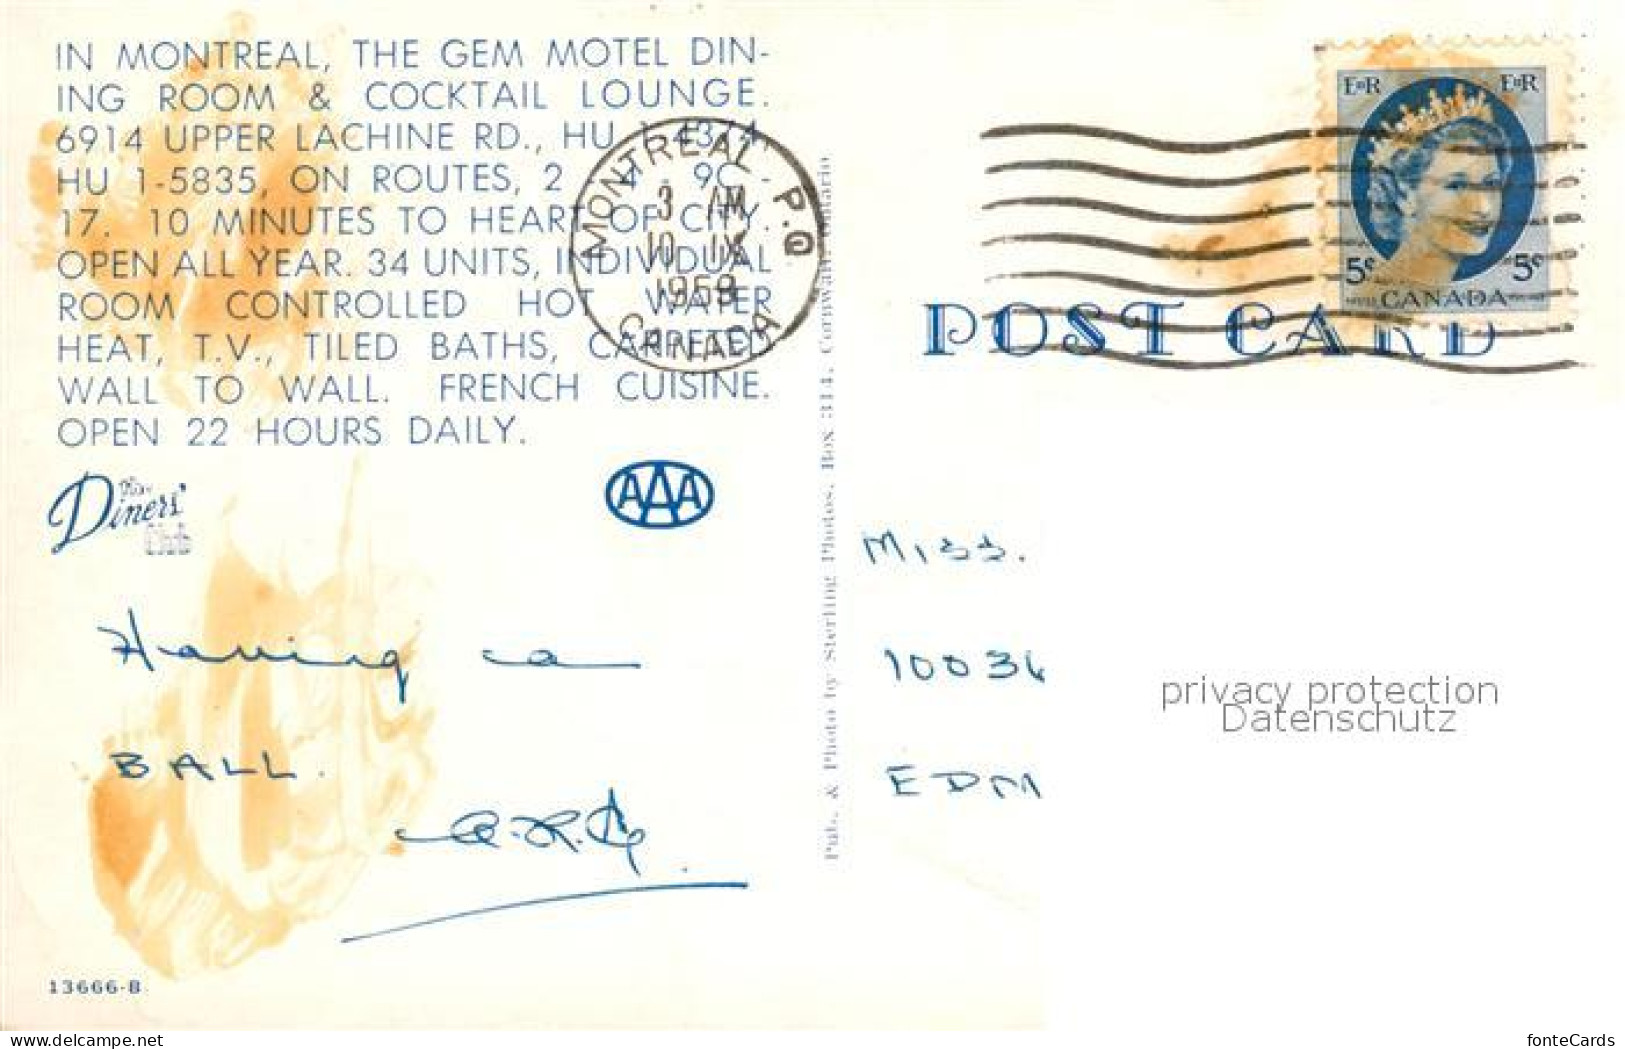 IN MONTREAL, THE GEM MOTEL DIN-
ING ROOM & COCKTAIL LOUNGE.
6914 UPPER LACHINE RD., HU 1-4374,
HU 1-5835, ON ROUTES, 2 - 4 - 9C -
17. 10 MINUTES TO HEART OF CITY.
OPEN ALL YEAR. 34 UNITS, INDIVIDUAL
ROOM CONTROLLED HOT WATER
HEAT, T.V., TILED BATHS, CARPETED
WALL TO WALL. FRENCH CUISINE.
OPEN 22 HOURS DAILY.
The
Diners'
Club
AAA
Having a
BALL.
13666-B
MONTREAL P.Q.
3 AM
10 IX
1959
CANADA
Pub. & Photo by Sterling Photos, Box 314, Cornwall, Ontario
EIIR EIIR
5c 5c
CANADA
POST CARD
Miss.
10036
EDM
privacy protection
Datenschutz
www.delcampe.net
fonteCards